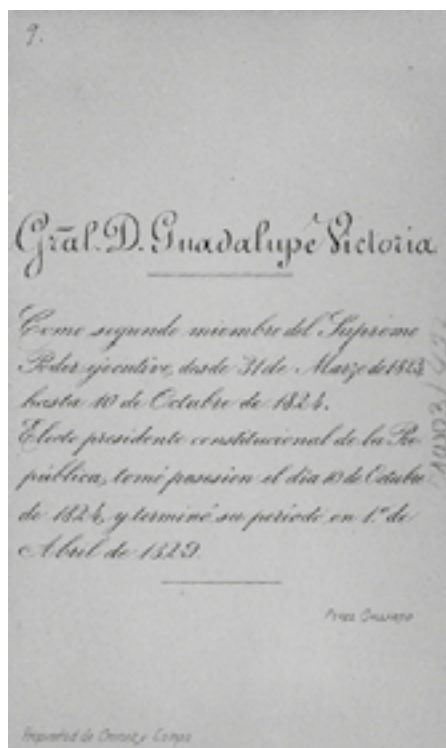 9.
Gral. D. Guadalupe Victoria
Como segundo miembro del Supremo
Poder ejecutivo, desde 31 de Marzo de 1823
hasta 10 de Octubre de 1824.
Electo presidente constitucional de la Re
pública, tomó posesion el dia 10 de Octubre
de 1824, y terminó su periodo en 1.º de
Abril de 1829.
Perez
Propiedad de Orozco y Campa